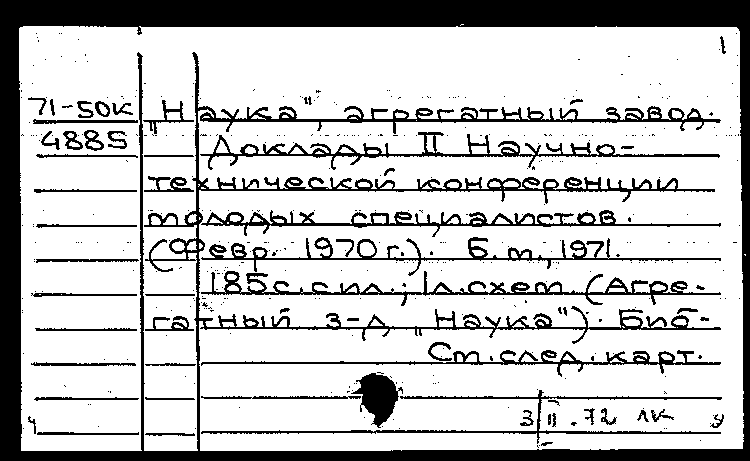 1
71-50к
4885
„Наука", агрегатный завод.
Доклады II Научно-
технической конференции
молодых специалистов.
(Февр. 1970 г.). Б. т., 1971.
185 с. с ил.; 1 л. схем. (Агре-
гатный з-д „Наука"). Биб-
Ст. след. карт.
3|II.72 лк